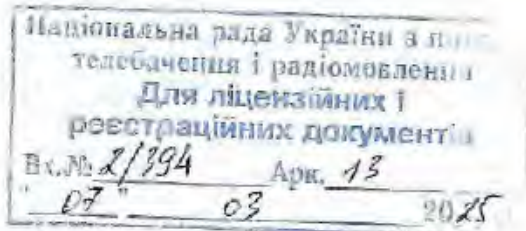 Національна рада України з пит
телебачення і радіомовлення
Для ліцензійних і
реєстраційних документів
Вх.№ 2/394 Арк. 13
" 07 " 03 2025